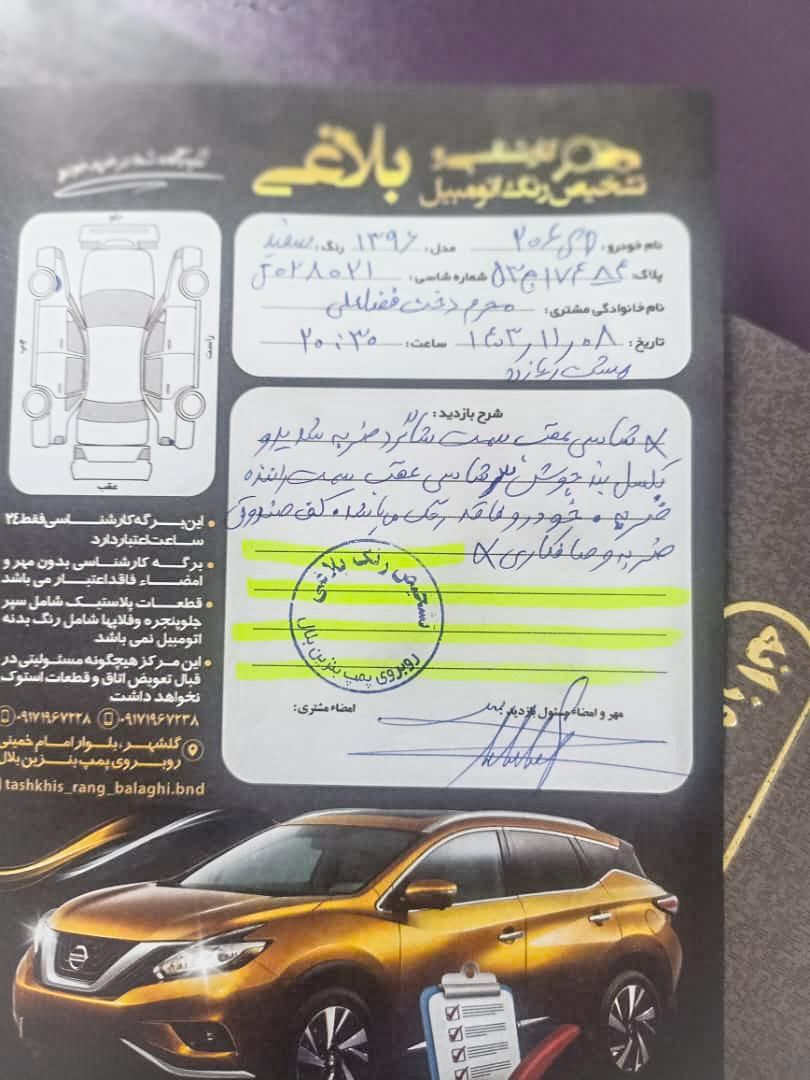 کارشناسی و
تشخیص رنگ اتومبیل
بلاغی
جلو
راست
چپ
عقب
نام خودرو: ۲۰۶ SD مدل: ۱۳۹۶ رنگ: سفید
پلاک: شماره شاسی: ۰۲۸۰۲۱
نام خانوادگی مشتری: محرم دخت فضلعلی
تاریخ: ۱۴۰۳/۱۱/۰۸ ساعت: ۲۰:۳۰
شرح بازدید:
* شاسی عقب سمت شاگرد ضربه شدید و
جوش شاسی عقب سمت راننده
ضربه خودرو فاقد رنگ میباشد. کف صندوق
ضربه و صافکاری *
تشخیص رنگ بلاغی
روبروی پمپ بنزین بلال
مهر و امضاء مسئول بازدید
امضاء مشتری:
این برگه کارشناسی فقط ۲۴
ساعت اعتبار دارد
برگه کارشناسی بدون مهر و
امضاء فاقد اعتبار می باشد
قطعات پلاستیک شامل سپر
جلوپنجره و فلاپها شامل رنگ بدنه
اتومبیل نمی باشد
این مرکز هیچگونه مسئولیتی در
قبال تعویض اتاق و قطعات استوک
نخواهد داشت
۰۹۱۷۱۹۶۷۲۳۸
۰۹۱۷۱۹۶۷۲۲۸
گلشهر، بلوار امام خمینی
روبروی پمپ بنزین بلال
tashkhis_rang_balaghi.bnd